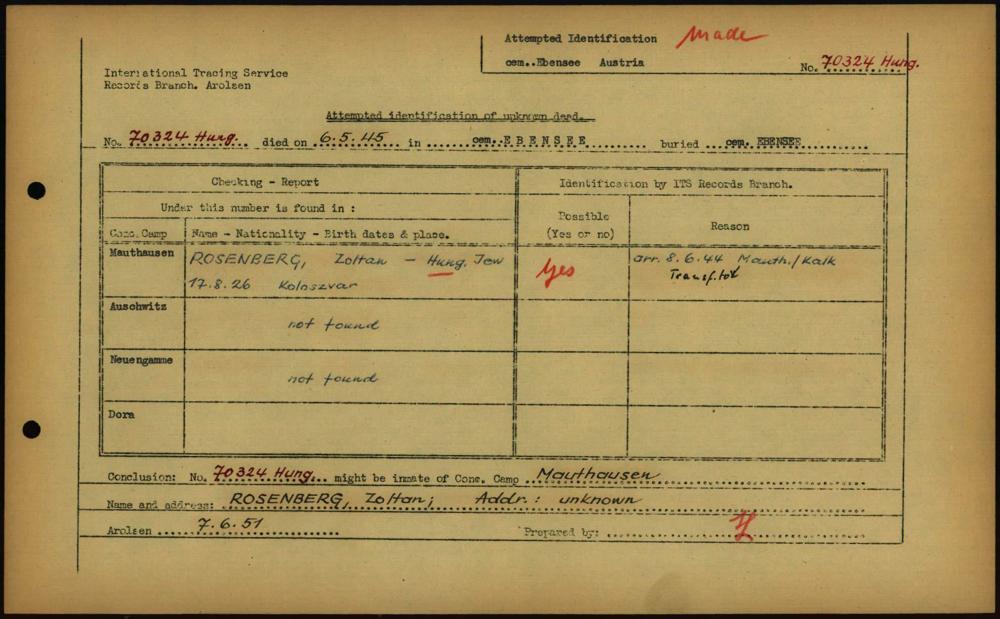 Attempted Identification Made
cem..Ebensee Austria
No. 70324 Hung.
International Tracing Service
Records Branch. Arolsen
Attempted identification of unknown dead.
No. 70324 Hung. died on 6.5.45 in cem..EBENSEE buried cem. EBENSEE
Checking - Report
Identification by ITS Records Branch.
Under this number is found in :
Possible
(Yes or no)
Reason
Conc. Camp Name - Nationality - Birth dates & place.
Mauthausen ROSENBERG, Zoltan - Hung. Jew
17.8.26 Koloszvar
Yes
arr. 8.6.44 Mauth./Kalk
Auschwitz
not found
Neuengamme
not found
Dora
Conclusion: No. 70324 Hung. might be inmate of Conc. Camp Mauthausen
Name and address: ROSENBERG, Zoltan; Addr.: unknown
Arolsen 7.6.51 Prepared by: